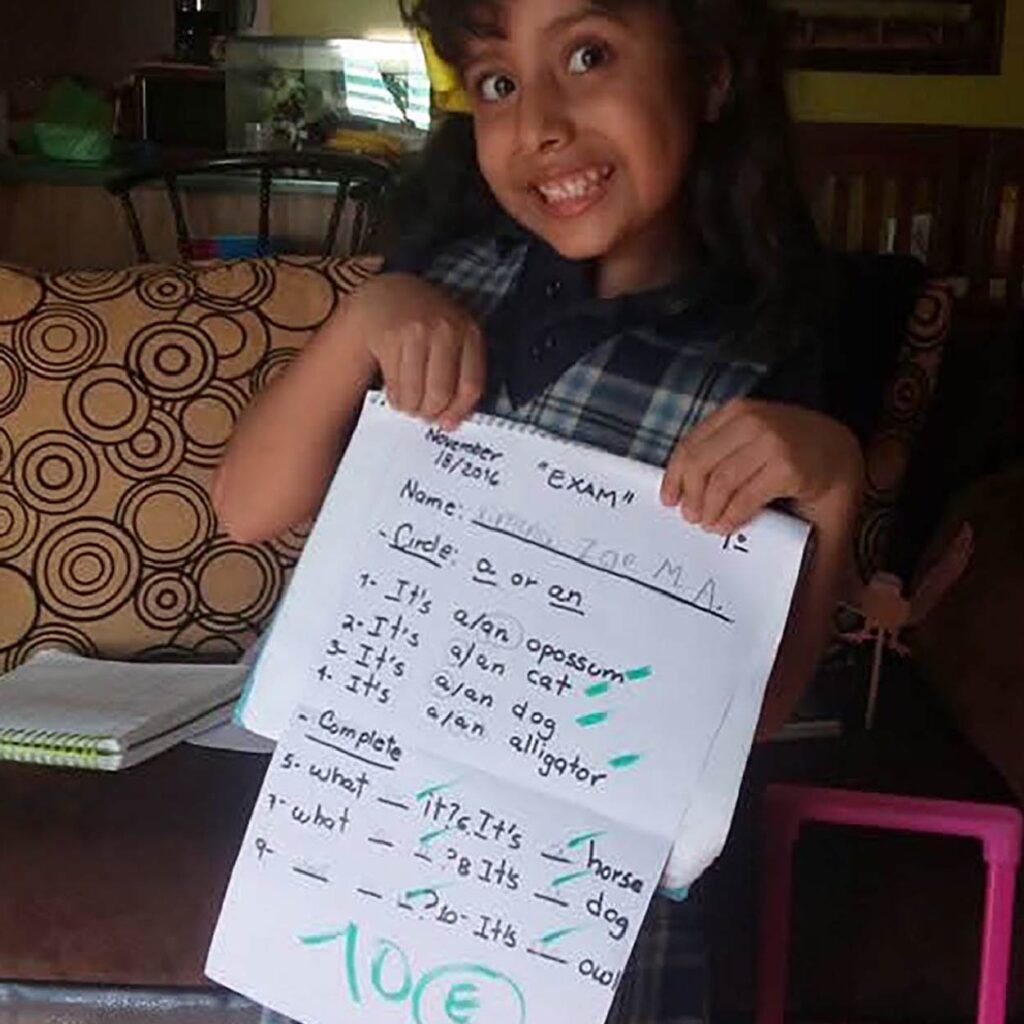 November
18/2016
"EXAM"
1º
Name: Zoe M. A.
- Circle: a or an
1- It's a/an opossum
2- It's a/an cat
3- It's a/an dog
4. It's a/an alligator
- Complete
5. what __ it? 6. It's __ horse
7- what __ __? 8 It's __ dog
9- __ __ __? 10- It's __ owl
10 E